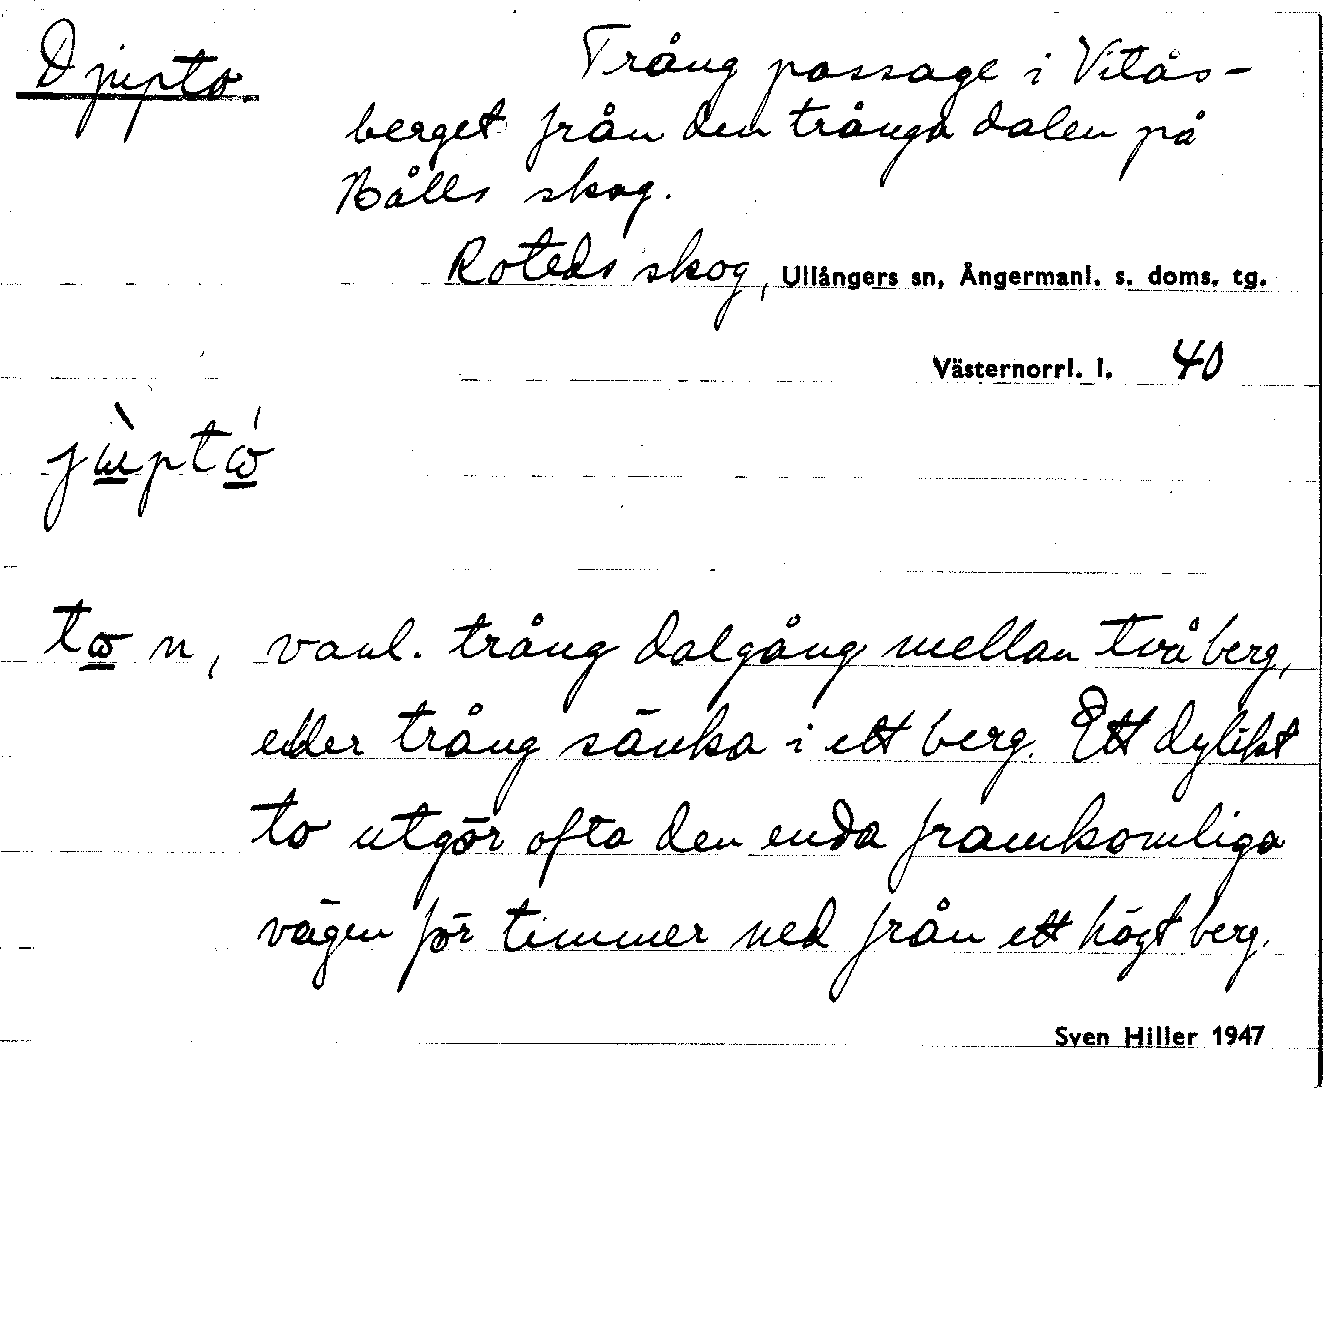 Djupto
Trång passage i Vitås-
berget från den trånga dalen på
Hålls skog.
Roteds skog, Ullångers sn, Ångermanl. s. doms. tg.
Västernorrl. l. 40
to n, vanl. trång dalgång mellan två berg,
eller trång sänka i ett berg. Ett dylikt
to utgör ofta den enda framkomliga
vägen för timmer ned från ett högt berg.
Sven Hiller 1947